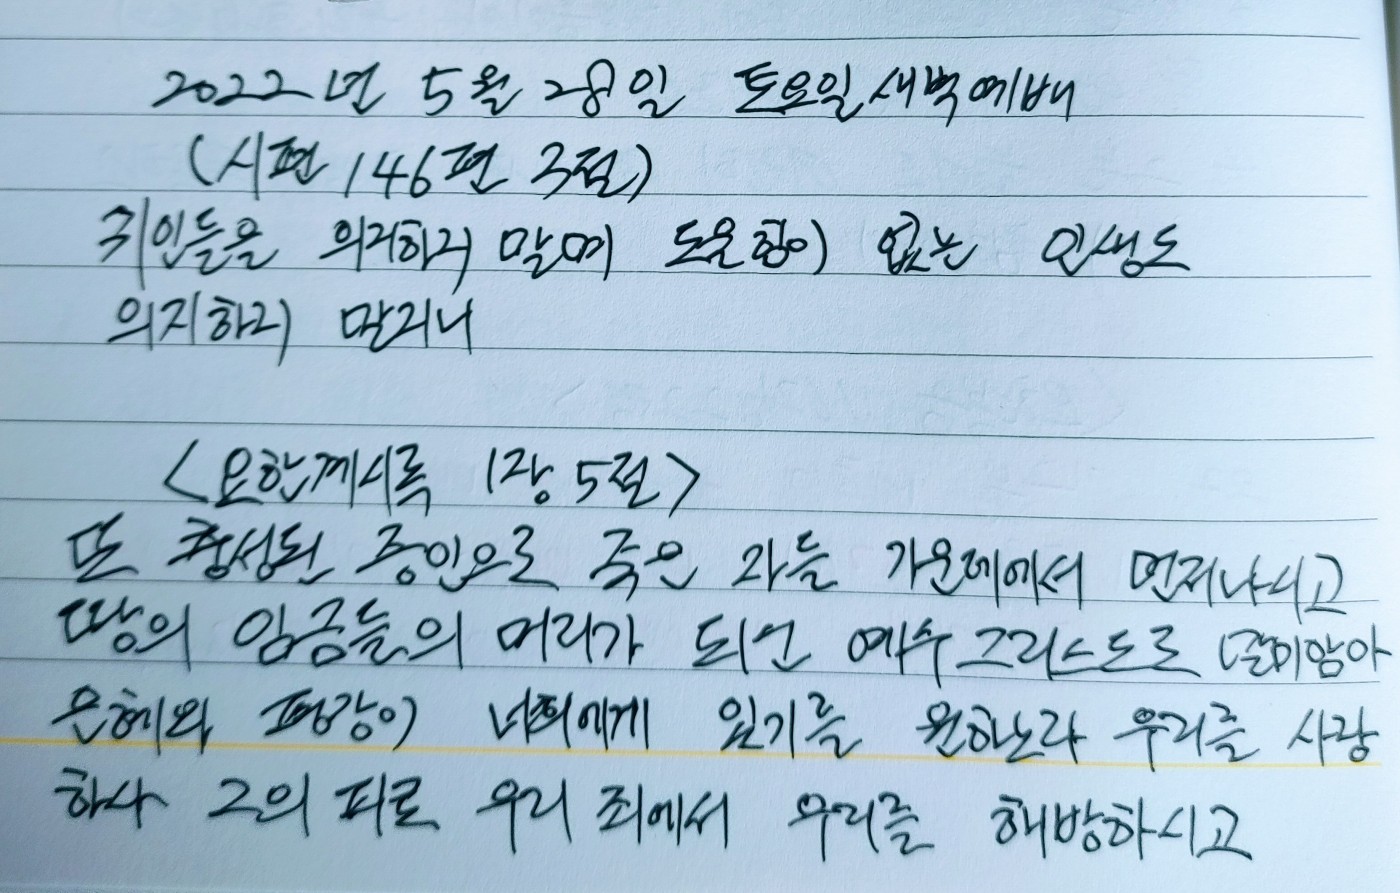 2022년 5월 28일 토요일새벽예배
(시편 146편 3절)
귀인들을 의지하지 말며 도울힘이 없는 인생도
의지하지 말지니
<요한계시록 1장 5절>
또 충성된 증인으로 죽은 자들 가운데에서 먼저나시고
땅의 임금들의 머리가 되신 예수그리스도로 말미암아
은혜와 평강이 너희에게 있기를 원하노라 우리를 사랑
하사 그의 피로 우리 죄에서 우리를 해방하시고